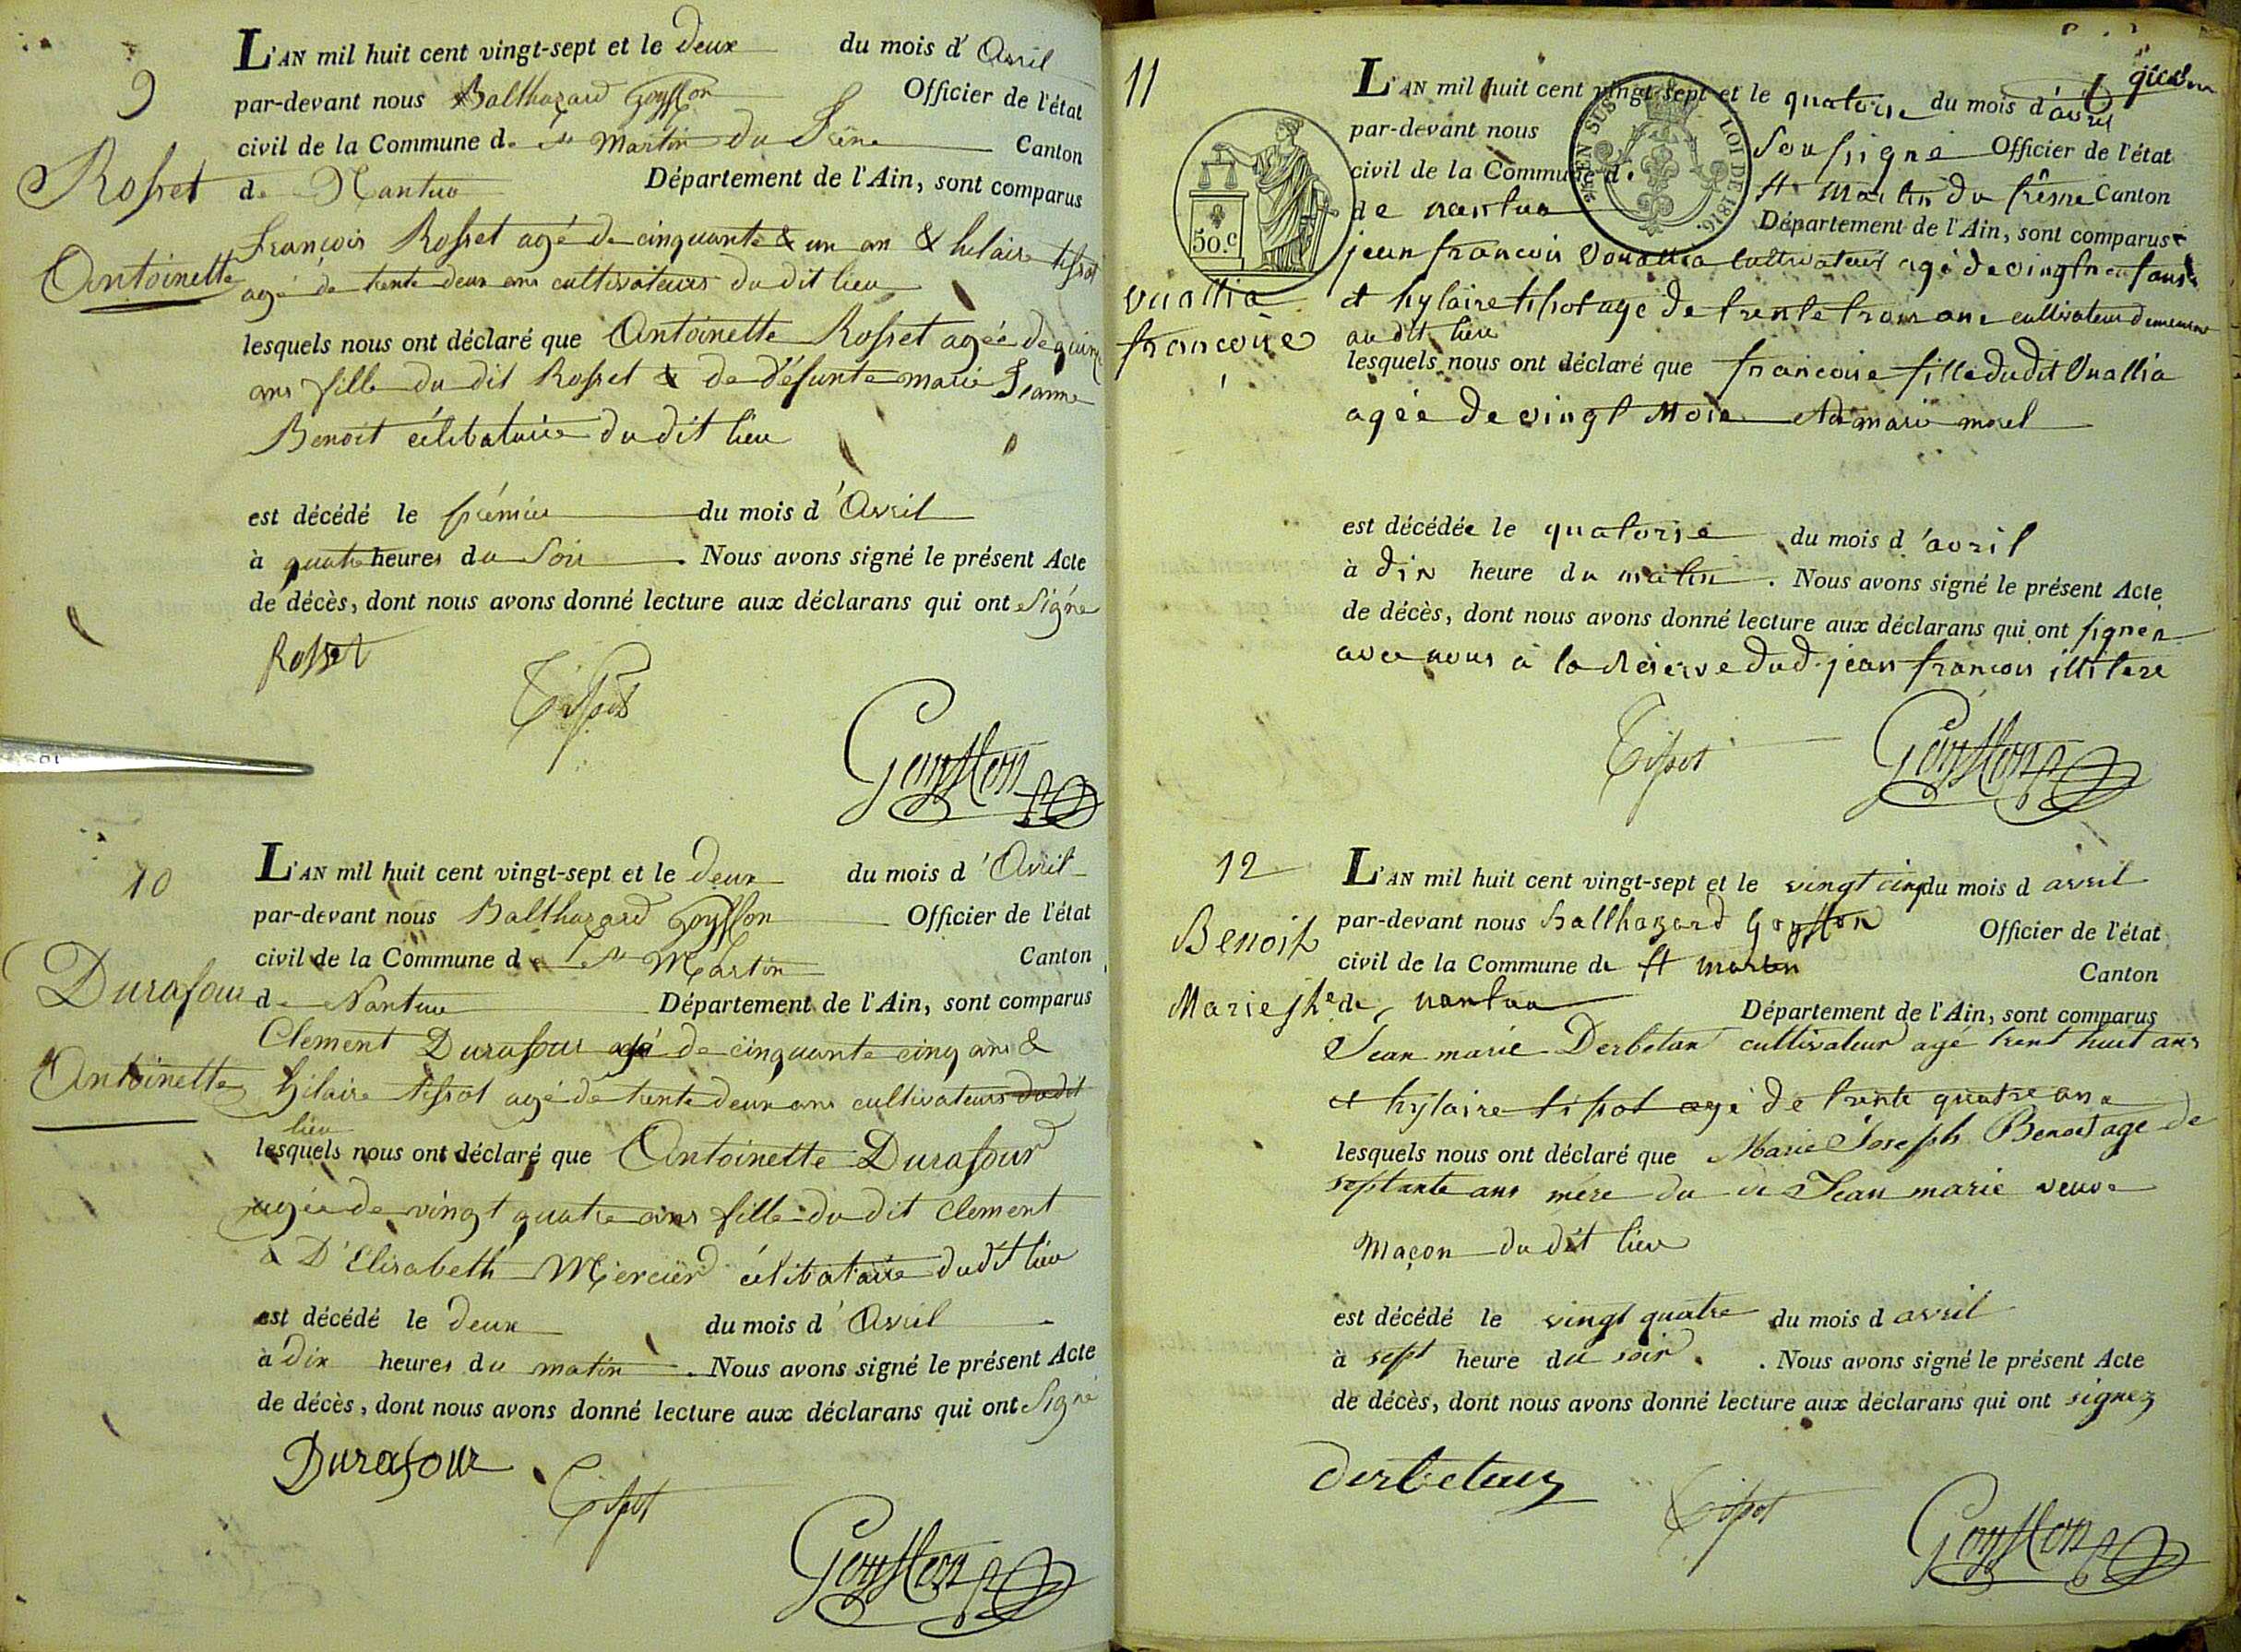 9
L'AN mil huit cent vingt-sept et le deux du mois d' Avril
par-devant nous Balthazard Goyffon Officier de l'état
civil de la Commune de St Martin du Frêne Canton
de Nantua Département de l'Ain, sont comparus
Rosset
Antoinette
françois Rosset agé de cinquante & un an & hilaire tissot
agé de trente deux ans cultivateurs du dit lieu
lesquels nous ont déclaré que Antoinette Rosset agée de quinze
ans fille du dit Rosset & de Défunte marie Jeanne
Benoit célibataire du dit lieu
est décédé le prémier du mois d'Avril
à quatre heures du Soir. Nous avons signé le présent Acte
de décès, dont nous avons donné lecture aux déclarans qui ont Signé
Rosset
Tissot
Goyffon
10
L'AN mil huit cent vingt-sept et le deux du mois d'Avril
par-devant nous Balthazard Goyffon Officier de l'état
civil de la Commune de St Martin Canton
de Nantua Département de l'Ain, sont comparus
Durafour
Antoinette
Clement Durafour agé de cinquante cinq ans &
hilaire tissot agé de trente deux ans cultivateurs du dit
lieu
lesquels nous ont déclaré que Antoinette Durafour
agée de vingt quatre ans fille du dit Clement
& D'Elisabeth Mercier célibataire du dit lieu
est décédé le deux du mois d'Avril
à dix heures du matin. Nous avons signé le présent Acte
de décès, dont nous avons donné lecture aux déclarans qui ont Signé
Durafour
Tissot
Goyffon
11
L'AN mil huit cent vingt-sept et le quatorse du mois d'avril
par-devant nous Soussigné Officier de l'état
civil de la Commune de St Martin du frêsne Canton
de nantua Département de l'Ain, sont comparus
EN SUS
LOI DE 1816.
50.c
vuallia
francoise
jean francois Vouallia cultivateur agé de vingt
et hylaire tissot age de trente trois ans cultivateur demeurant
au dit lieu
lesquels nous ont déclaré que francoise fille du dit Vuallia
agée de vingt Mois et de marie morel
est décédée le quatorse du mois d'avril
à dix heure du matin. Nous avons signé le présent Acte
de décès, dont nous avons donné lecture aux déclarans qui ont signer
avec nous à la Réserve dud. jean francois illitere
Tissot
Goyffon
12
L'AN mil huit cent vingt-sept et le vingt cinq du mois d avril
par-devant nous balthazard Goyffon Officier de l'état
civil de la Commune de st martin Canton
de nantua
Département de l'Ain, sont comparus
Benoit
Marie jhe
Jean marie Derbetan cultivateur agé trent huit ans
et hylaire tissot agé de trente quatre ans
lesquels nous ont déclaré que Marie Joseph Benoit age de
septante ans mére du dit Jean marie veuve
Maçon du dit lieu
est décédé le vingt quatre du mois d avril
à sept heure du soir. Nous avons signé le présent Acte
de décès, dont nous avons donné lecture aux déclarans qui ont signez
derbetanz
Tissot
Goyffon